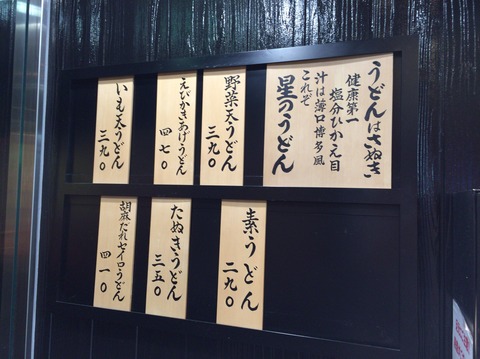 うどんはさぬき
健康第一
塩分ひかえ目
汁は薄口博多風
これぞ
星のうどん
野菜天うどん
三九〇
えびかきあげうどん
四七〇
いも天うどん
三九〇
素うどん
二九〇
たぬきうどん
三五〇
胡麻だれセイロうどん
四一〇